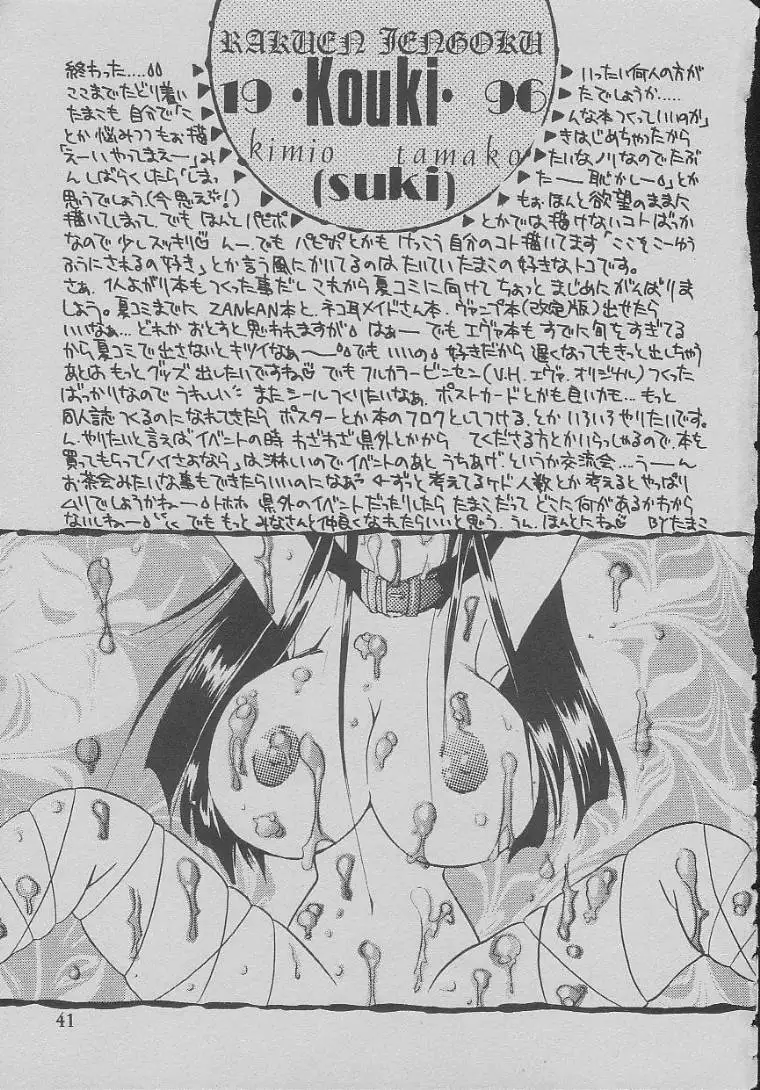 RAKUEN JENGOKU
19 ・Kouki・ 96
kimio tamako
(suki)
終わった‥‥ ▶ ▶いったい何人の方が
ここまでたどり着い▶ ▶たでしょうか‥‥
たまこも 自分で「こ▶ ▶んな本つくっていいのか」
とか悩みつつもぉ描▶ ▶きはじめちゃったから
「えーいやってまえー」み▶ ▶たいなノリなのでたぶ
ん しばらくしたら「しまっ▶ ▶たー 恥かしー」とか
思うでしょう(今思えば!)▶ ▶もぉ ほんと欲望のままに
描いてしまって、でも ほんとパピポ▶ ▶とかでは描けないコトばっか
なので 少しスッキリ♡ んー、でも パピポとかも けっこう自分のコト描いてます「ここそこーゆう
ふうにされるの好き」とか言う風にかいてるのは たいてい たまこの好きなトコです。
さぁ、1人よがり本もつくった事だし これから夏コミに向けて ちょっと まじめにがんばりま
しょう。夏コミまでに ZANKAN本と、ネコ耳メイドさん本、ヴァンプ本(改定版)出せたら
いいなぁ‥ どれか おとすと思われますが はぁー でも エヴァ本も すでに旬をすぎてる
から夏コミで出さないと キツイなぁー でも いいの 好きだから 遅くなっても きっと出しちゃう
あとは もっと グッズ 出したいですね♡ でも フルカラービンセン(V.H、エヴァ、オリジナル)つくった
ばっかりなので うれしい また シールつくりたいなぁ、ポストカードとかも良いかも…もっと
同人誌 つくるのに なれてきたら ポスターとか本のフロクとしてつける、とか いろいろ やりたいです。
ん、やりたいと言えば イベントの時 わざわざ 県外とかから てくださる方とかいらっしゃるので、本も
買ってもらって「ハイさよなら」は 淋しいので イベントのあと うちあげ、というか交流会‥‥うーん
お茶会みたいな事もできたらいいのになぁ ←ずっと 考えてるケド 人数とか考えると やっぱり
ムリでしょうかねー トホホ 県外のイベントだったりしたら たまこだって どこに何があるかわから
ないしねー でも もっと みなさんと仲良くなれたらいいと思う、うん、ほんとにね♡ BYたまこ
41